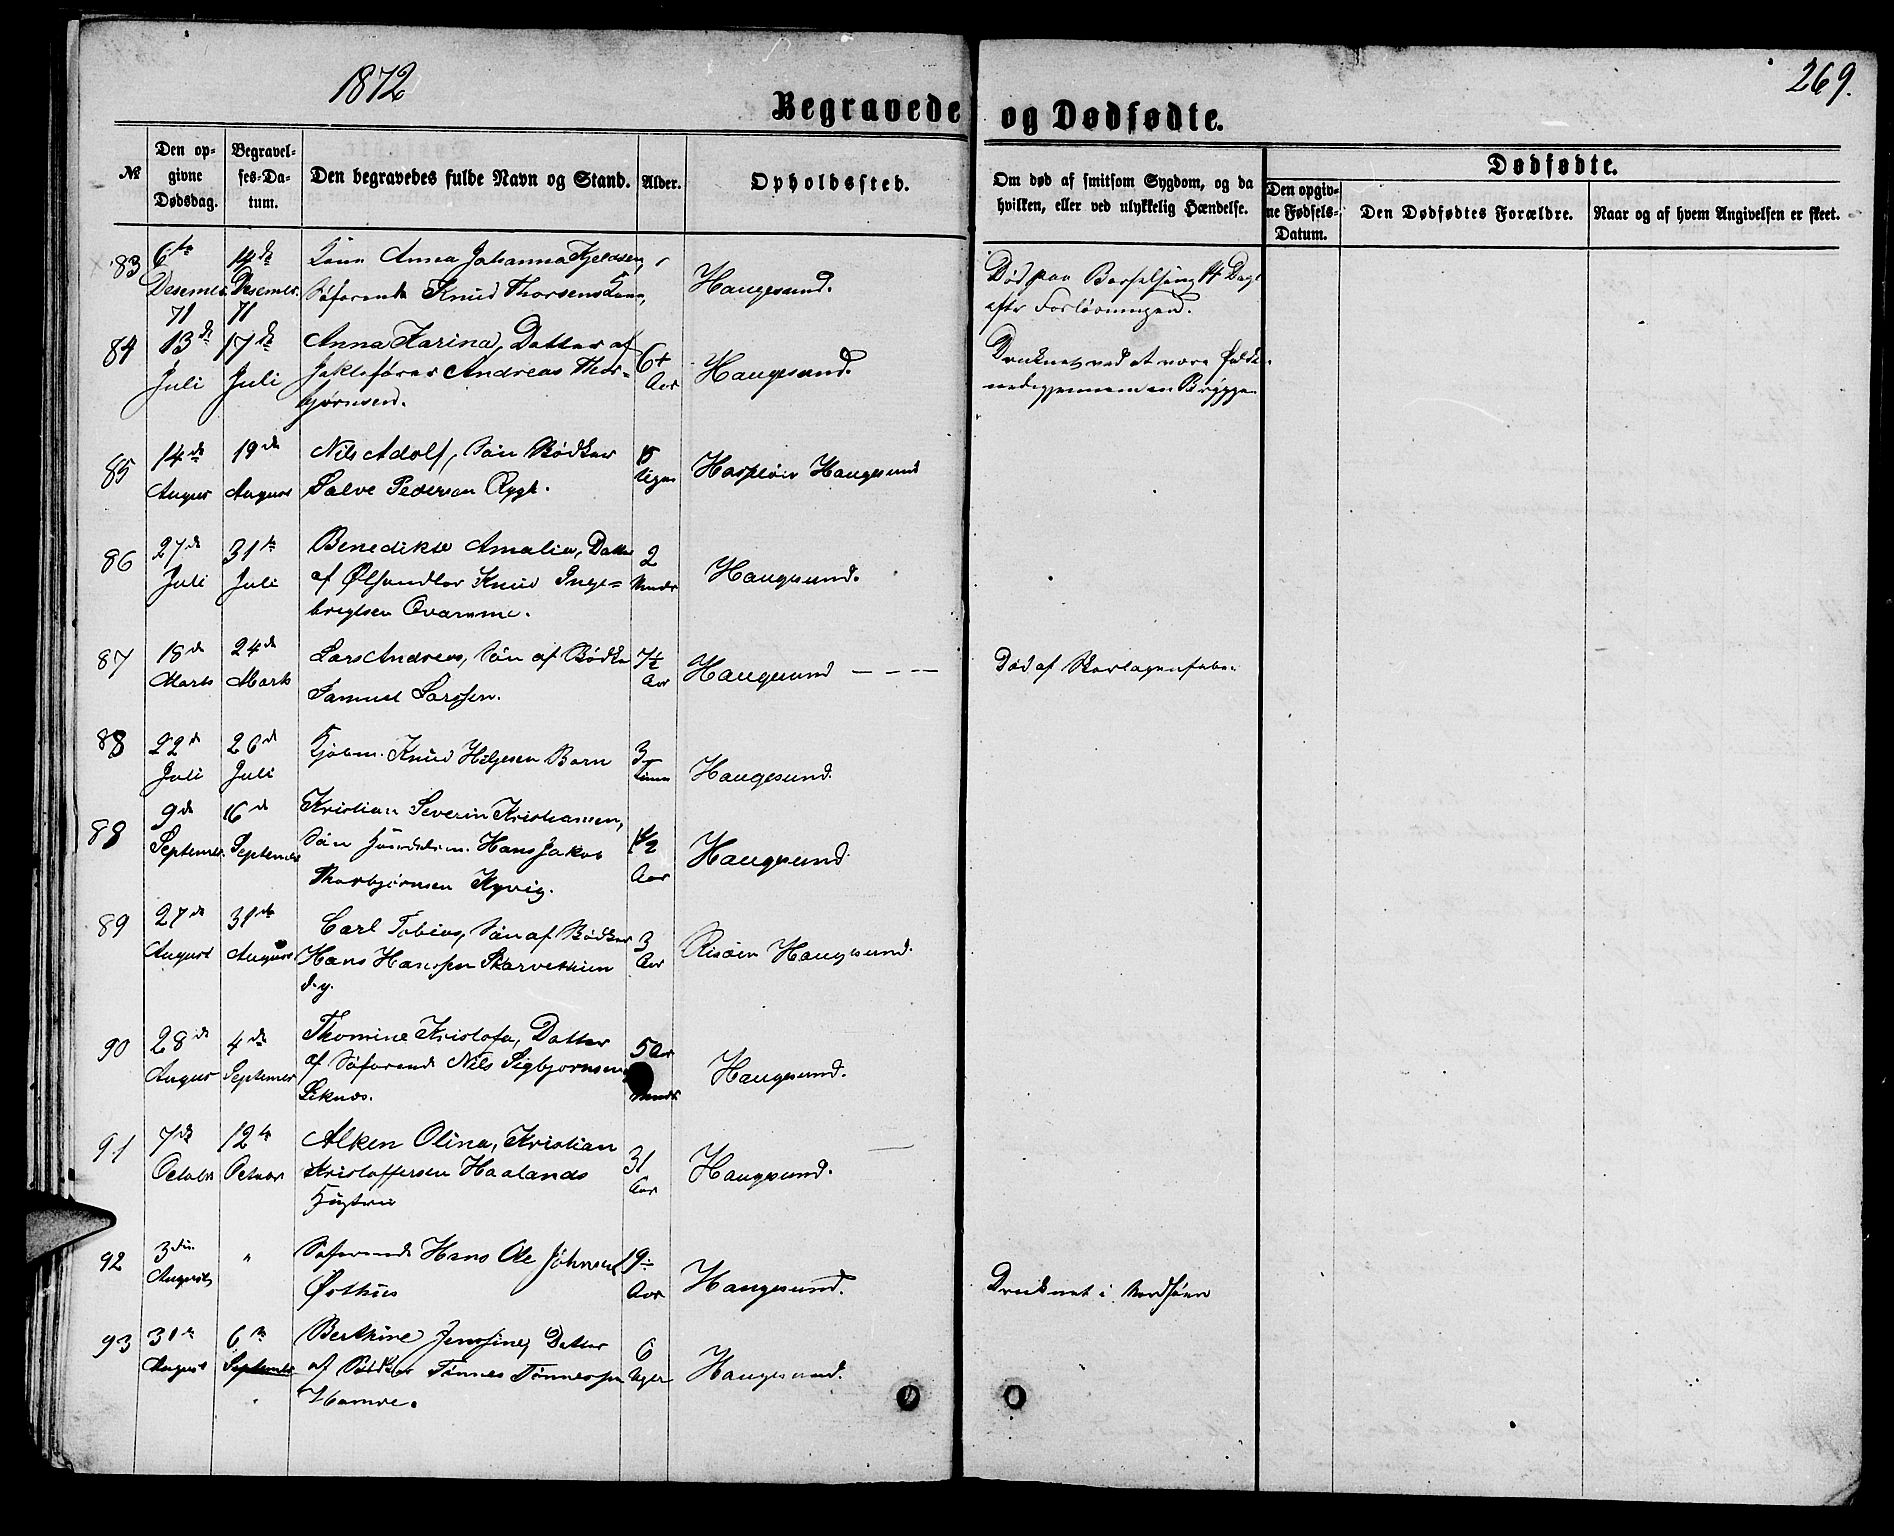 1872
269.
Begravede og Dødfødte.
№
Den op-
givne
Dødsdag.
Begravel-
ses-Da-
tum.
Den begravedes fulde Navn og Stand.
Alder.
Opholdssted.
Om død af smitsom Sygdom, og da
hvilken, eller ved ulykkelig Hændelse.
Dødfødte.
Den opgiv-
ne Fødsels-
Datum.
Den Dødfødtes Forældre.
Naar og af hvem Angivelsen er skeet.
83 6te Desember 71 14de Desember 71
Kone Anna Johanna
Søfarende Knud Thorsens Kone,
Haugesund.
Død paa Barselseng 14 Dage
efter Forløsningen.
84 13de Juli 17de Juli
Anna Karina, Datter af
Jaktefører Andreas Thor-
bjørnsen.
6 Aar
Haugesund.
Druknet ved at være falden
ned igjennem en Brygge
85 14de August 19de August
Nils Adolf, Søn Bødker
Salve Pedersen Rygh.
15 Uger
Hasseløen Haugesund
86 27de Juli 31te Juli
Benedikte Amalia, Datter
af Ølhandler Knud Inge=
brigtsen Qvamme.
2 Mndr
Haugesund.
87 18de Marts 24de Marts
Lars Andreas, Søn af Bødker
Samuel Larssen.
7½ Aar
Haugesund - - - -
Død af Skarlagensfeber
88 22de Juli 26de Juli
Kjøbm. Knud Helgesen Barn
3 Timer
Haugesund.
88 9de September 16de September
Kristian Severin Kristiansen,
Søn Handelsm. Hans Jakob
Thorbjørnsen Kyvig.
1½ Aar
Haugesund
89 27de August 31te August
Carl Tobias, Søn af Bødker
Hans Hanssen Skarvethun
d.y.
3 Aar
Risøen Haugesund.
90 28de August 4de September
Thomine Kristofa, Datter
af Søfarende Nils Sigbjørnsen
Leknæs.
5 Aar Mndr
Haugesund.
91 7de October 12te October
Alken Olina, Kristian
Kristoffersen Haalands
Hustru
31 Aar
Haugesund.
92 3die Augusts "
Søfarende Hans Ole Johnsen
Østhus
19 Aar
Haugesund.
Druknet i Nordsøen
93 31te August 6te September
Berthine Jenssine, Datter
af Bødker Tønnes Tønnessen
Hamre.
6 Uger
Haugesund.